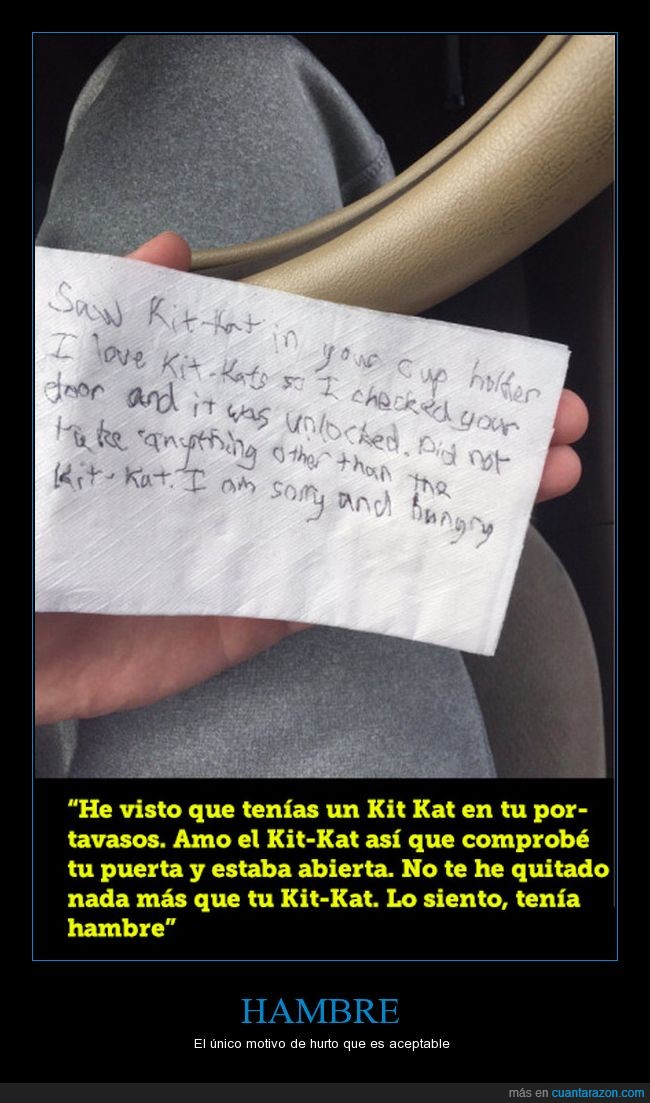 Saw Kit-Kat in your cup holder
I love Kit-Kats so I checked your
door and it was unlocked. Did not
take anything other than the
Kit-Kat. I am sorry and hungry
“He visto que tenías un Kit Kat en tu por-
tavasos. Amo el Kit-Kat así que comprobé
tu puerta y estaba abierta. No te he quitado
nada más que tu Kit-Kat. Lo siento, tenía
hambre”
HAMBRE
El único motivo de hurto que es aceptable
más en cuantarazon.com